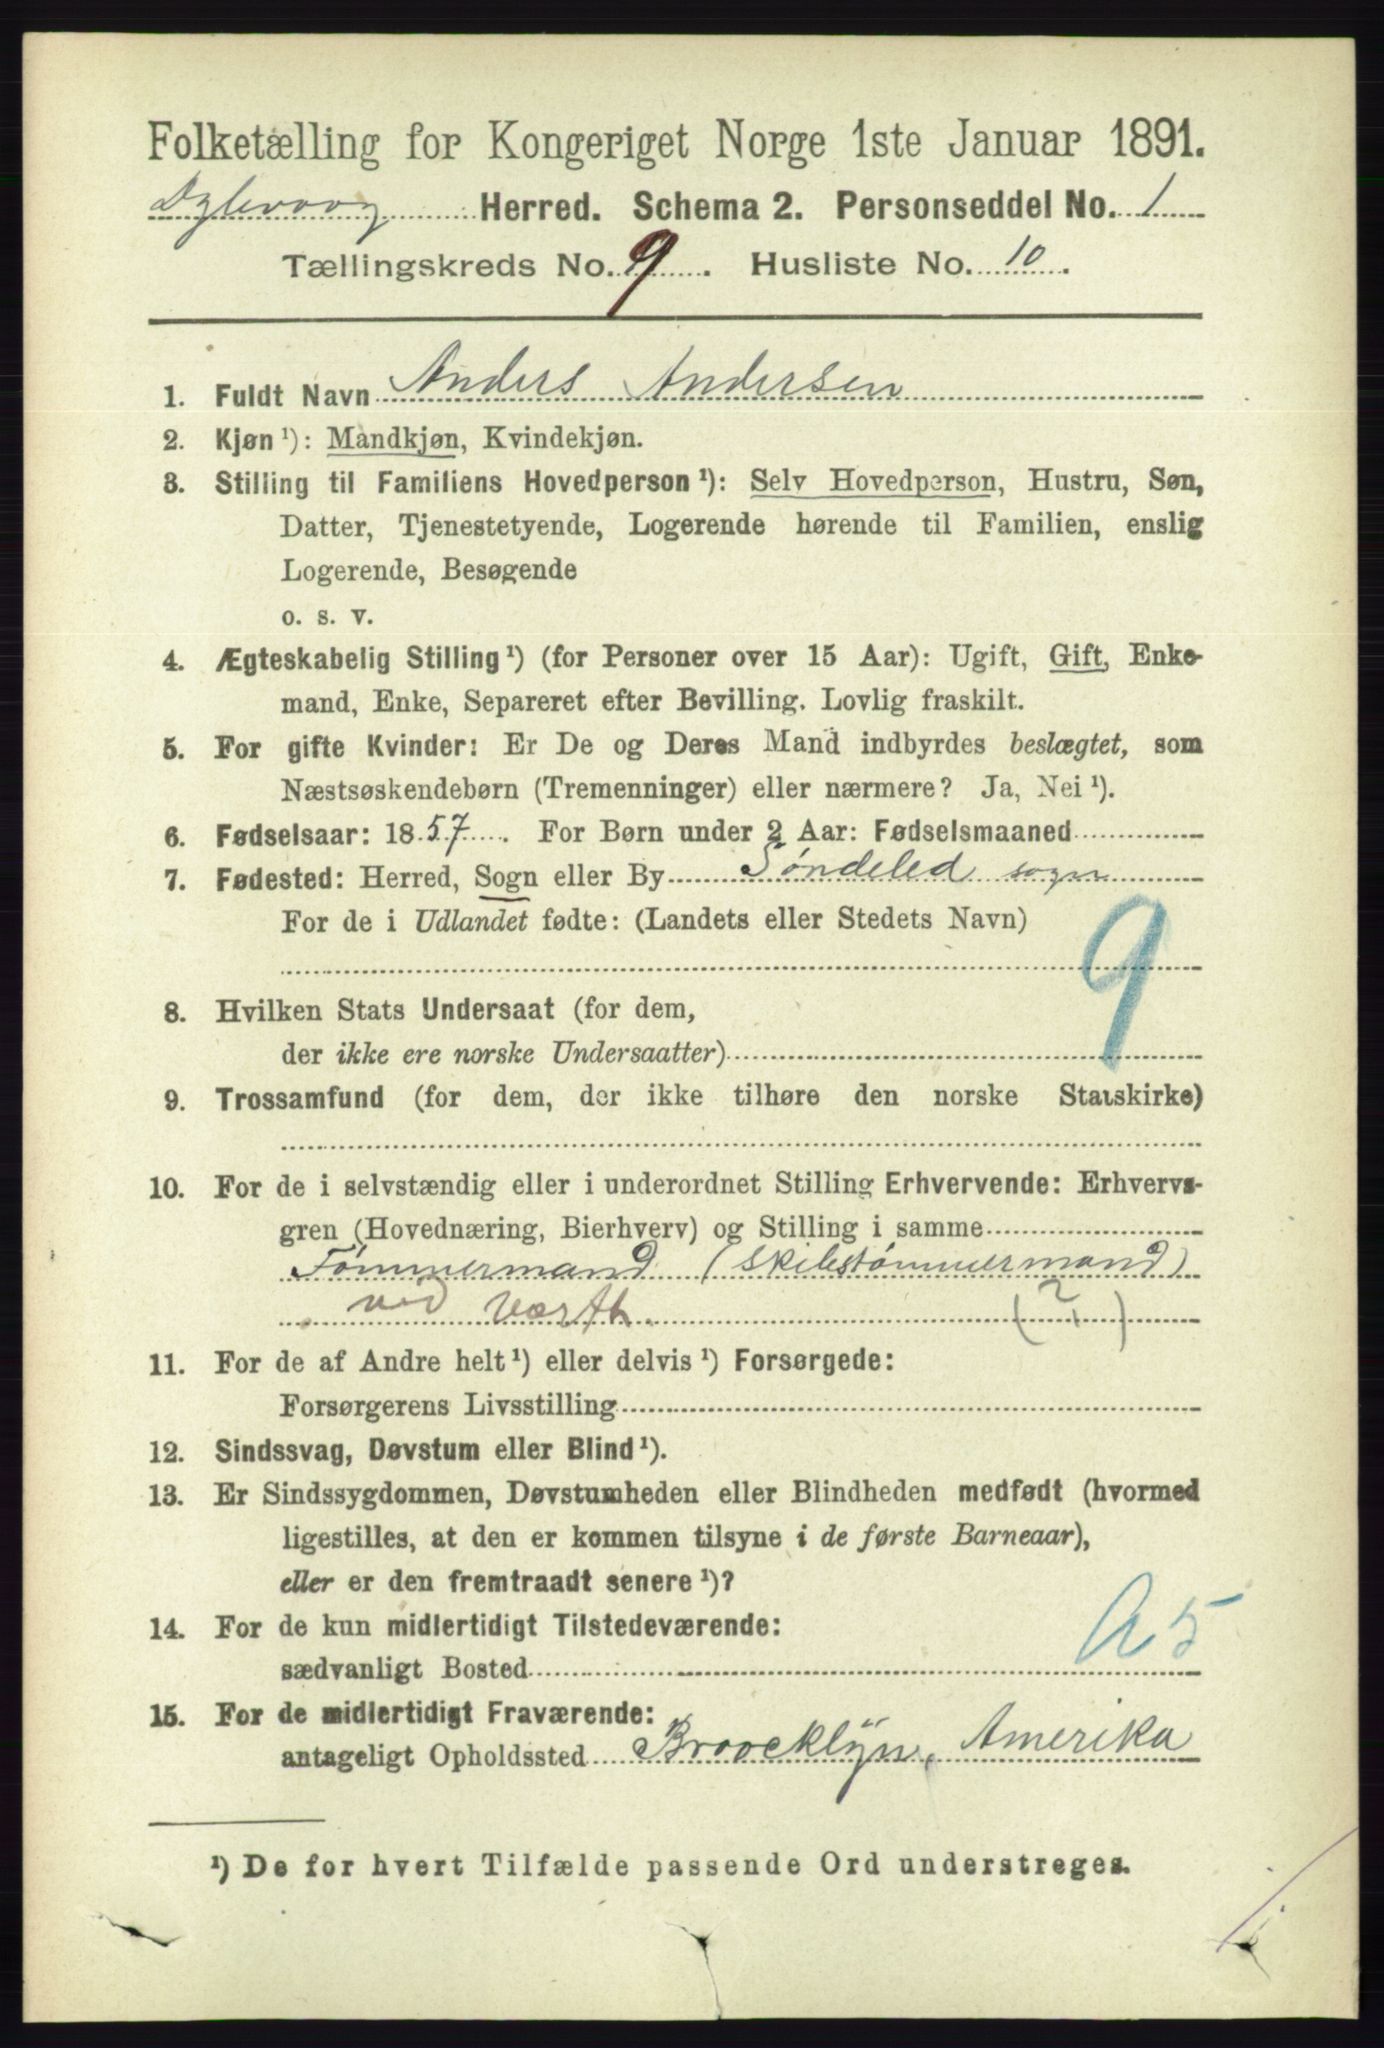 Folketælling for Kongeriget Norge 1ste Januar 1891.
Dybvaag Herred. Schema 2. Personseddel No. 1
Tællingskreds No. 9. Husliste No. 10.
1. Fuldt Navn Anders Andersen
2. Kjøn ¹): Mandkjøn, Kvindekjøn.
3. Stilling til Familiens Hovedperson ¹): Selv Hovedperson, Hustru, Søn,
Datter, Tjenestetyende, Logerende hørende til Familien, enslig
Logerende, Besøgende
o. s. v.
4. Ægteskabelig Stilling ¹) (for Personer over 15 Aar): Ugift, Gift, Enke-
mand, Enke, Separeret efter Bevilling. Lovlig fraskilt.
5. For gifte Kvinder: Er De og Deres Mand indbyrdes beslægtet, som
Næstsøskendebørn (Tremenninger) eller nærmere? Ja, Nei ¹).
6. Fødselsaar: 1857. For Børn under 2 Aar: Fødselsmaaned
7. Fødested: Herred, Sogn eller By Søndeled sogn
For de i Udlandet fødte: (Landets eller Stedets Navn)
9
8. Hvilken Stats Undersaat (for dem,
der ikke ere norske Undersaatter)
9. Trossamfund (for dem, der ikke tilhøre den norske Statskirke)
10. For de i selvstændig eller i underordnet Stilling Erhvervende: Erhvervs-
gren (Hovednæring, Bierhverv) og Stilling i samme
Tømmermand (skibstømmermand)
ved værft. (?)
11. For de af Andre helt ¹) eller delvis ¹) Forsørgede:
Forsørgerens Livsstilling
12. Sindssvag, Døvstum eller Blind ¹).
13. Er Sindssygdommen, Døvstumheden eller Blindheden medfødt (hvormed
ligestilles, at den er kommen tilsyne i de første Barneaar),
eller er den fremtraadt senere ¹)?
14. For de kun midlertidigt Tilstedeværende:
sædvanligt Bosted
A 5
15. For de midlertidigt Fraværende:
antageligt Opholdssted Broocklÿn, Amerika
¹) De for hvert Tilfælde passende Ord understreges.